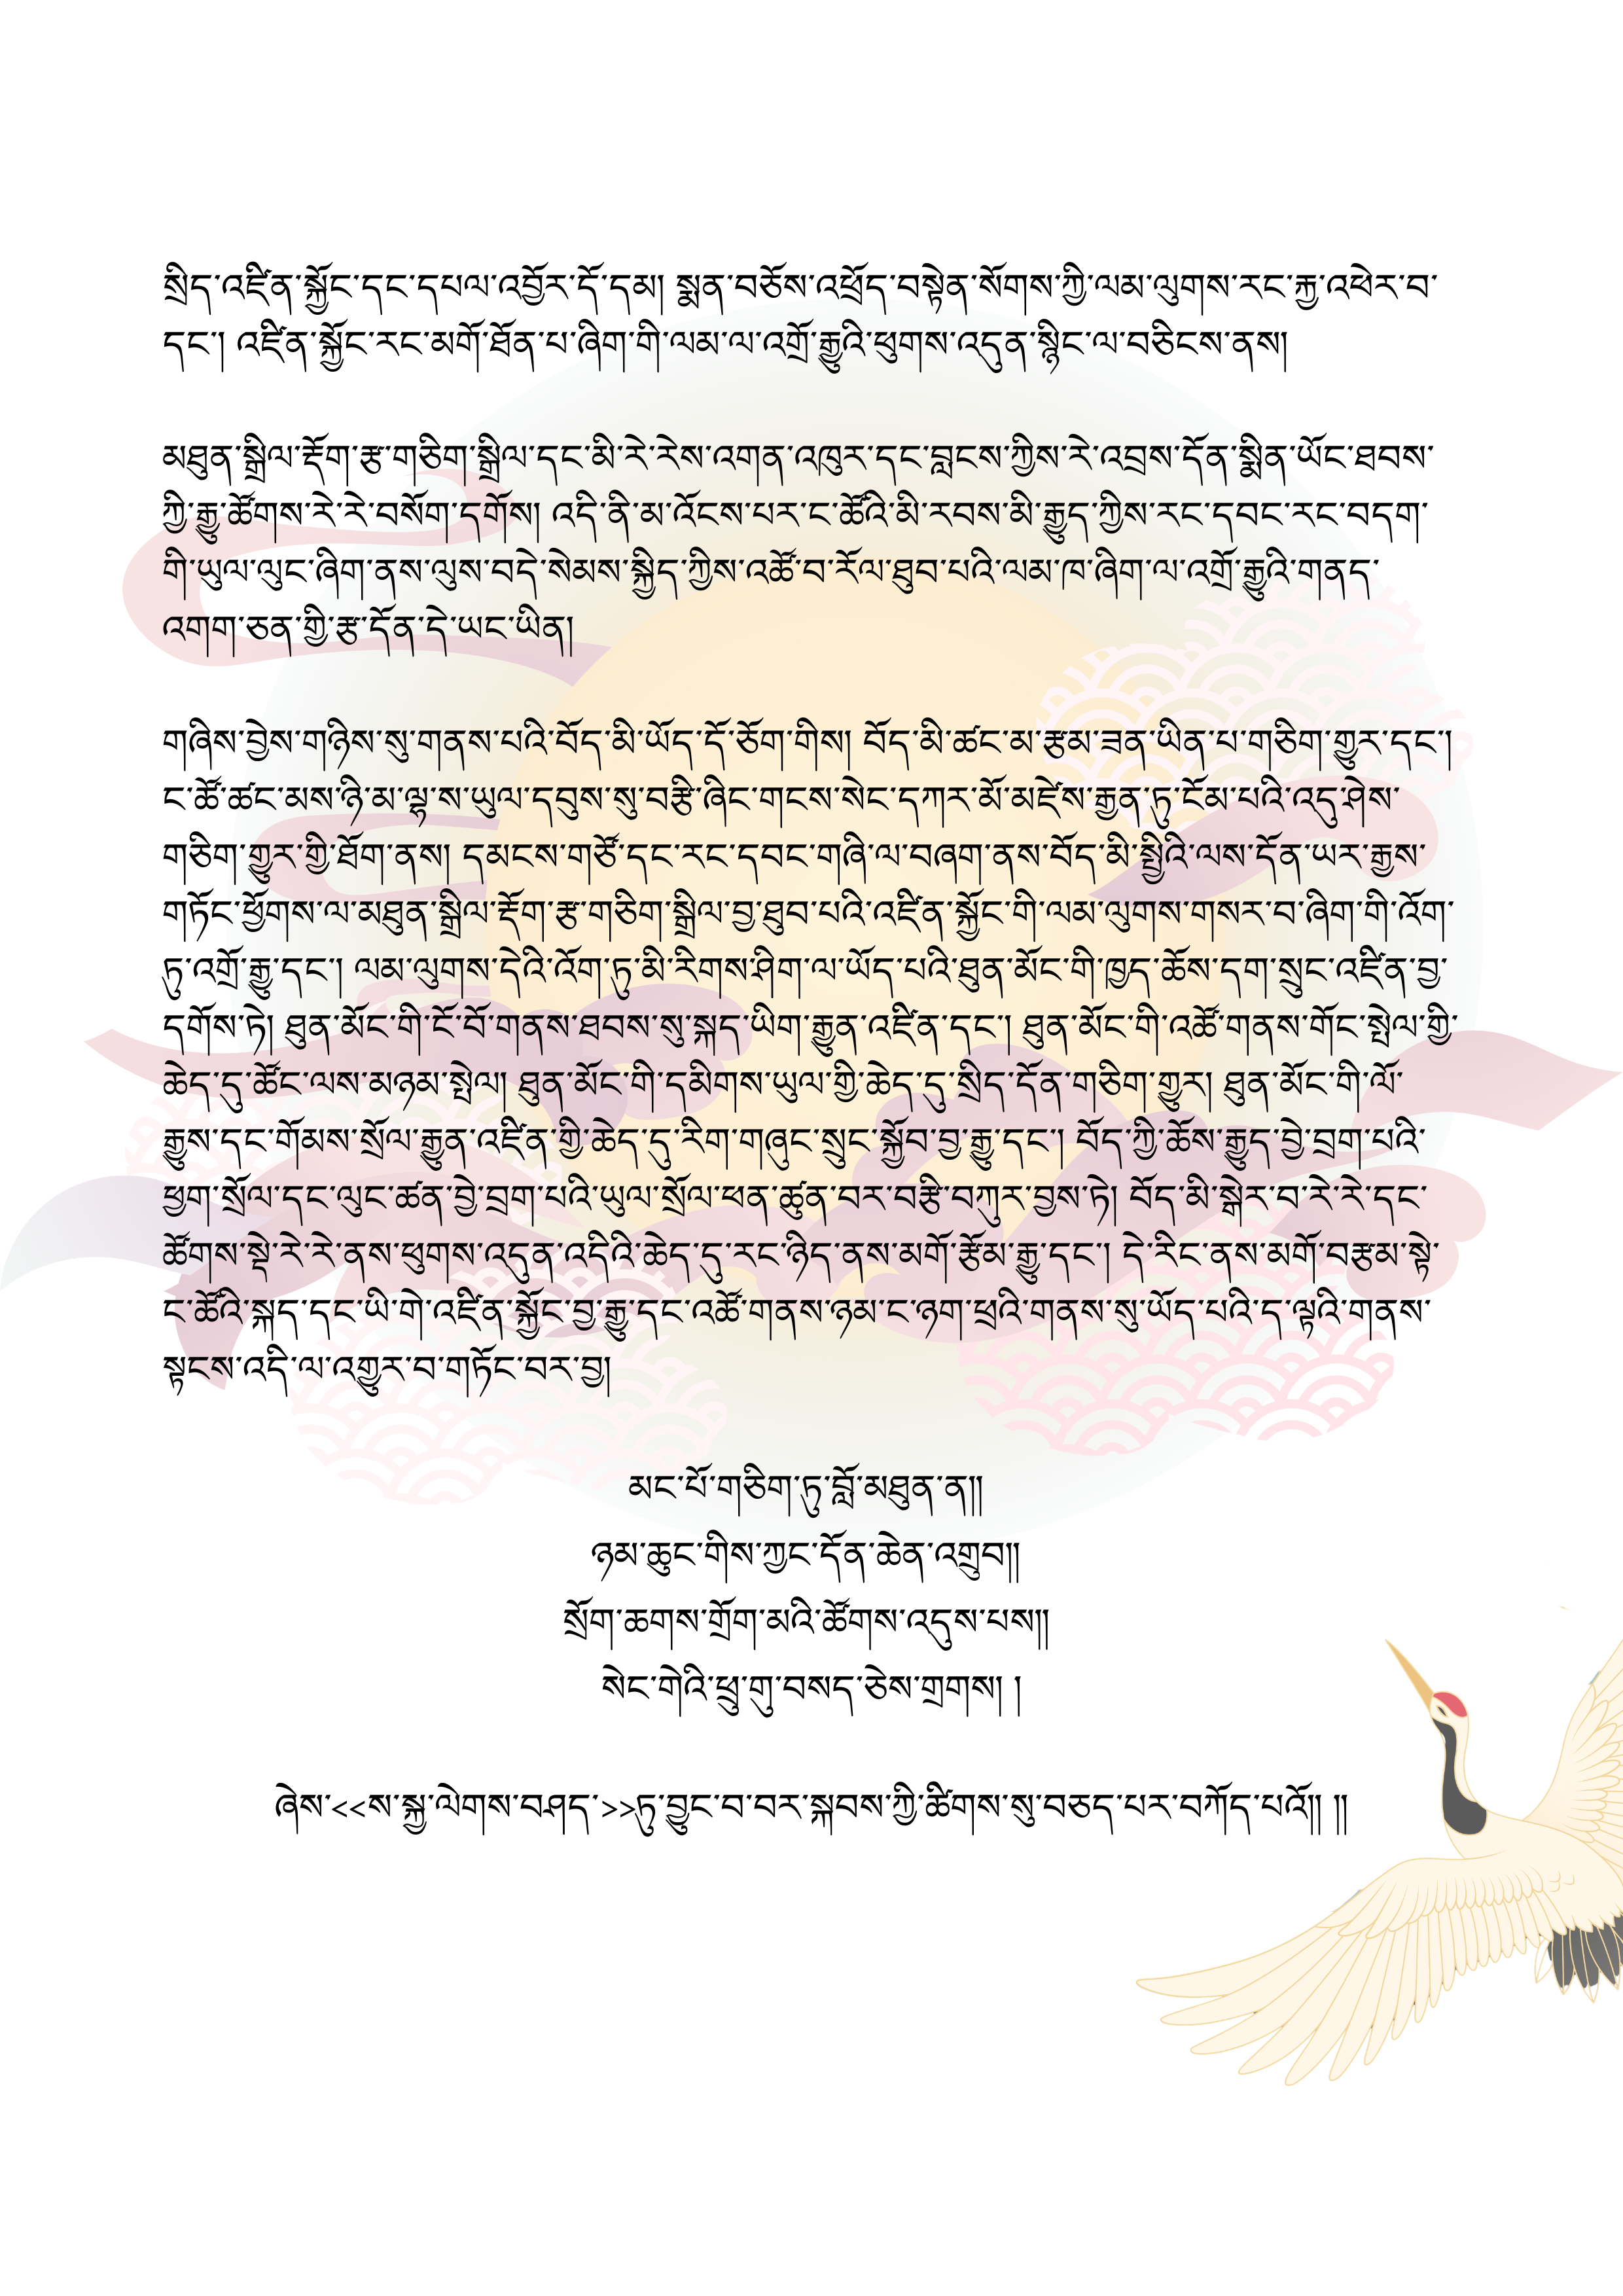 སྲིད་འཛིན་སྐྱོང་དང་དཔལ་འབྱོར་དོ་དམ། སྨན་བཅོས་འཕྲོད་བསྟེན་སོགས་ཀྱི་ལམ་ལུགས་རང་རྐྱ་འཕེར་བ་
དང་། འཛིན་སྐྱོང་རང་མགོ་ཐོན་པ་ཞིག་གི་ལམ་ལ་འགྲོ་རྒྱུའི་ཕུགས་འདུན་སྙིང་ལ་བཅིངས་ནས།
མཐུན་སྒྲིལ་རྡོག་རྩ་གཅིག་སྒྲིལ་དང་མི་རེ་རེས་འགན་འཁུར་དང་བླངས་ཀྱིས་རེ་འབྲས་དོན་སྨིན་ཡོང་ཐབས་
ཀྱི་རྒྱུ་ཚོགས་རེ་རེ་བསོག་དགོས། འདི་ནི་མ་འོངས་པར་ང་ཚོའི་མི་རབས་མི་རྒྱུད་ཀྱིས་རང་དབང་རང་བདག་
གི་ཡུལ་ལུང་ཞིག་ནས་ལུས་བདེ་སེམས་སྐྱིད་ཀྱིས་འཚོ་བ་རོལ་ཐུབ་པའི་ལམ་ཁ་ཞིག་ལ་འགྲོ་རྒྱུའི་གནད་
འགག་ཅན་གྱི་རྩ་དོན་དེ་ཡང་ཡིན།
གཞིས་བྱེས་གཉིས་སུ་གནས་པའི་བོད་མི་ཡོད་དོ་ཅོག་གིས། བོད་མི་ཚང་མ་རྩམ་ཟན་ཡིན་པ་གཅིག་གྱུར་དང་།
ང་ཚོ་ཚང་མས་ཉི་མ་ལྷ་ས་ཡུལ་དབུས་སུ་བརྩི་ཞིང་གངས་སེང་དཀར་མོ་མཛེས་རྒྱན་ཏུ་ངོམ་པའི་འདུ་ཤེས་
གཅིག་གྱུར་གྱི་ཐོག་ནས། དམངས་གཙོ་དང་རང་དབང་གཞི་ལ་བཞག་ནས་བོད་མི་སྤྱིའི་ལས་དོན་ཡར་རྒྱས་
གཏོང་ཕྱོགས་ལ་མཐུན་སྒྲིལ་རྡོག་རྩ་གཅིག་སྒྲིལ་བྱ་ཐུབ་པའི་འཛིན་སྐྱོང་གི་ལམ་ལུགས་གསར་བ་ཞིག་གི་འོག་
ཏུ་འགྲོ་རྒྱུ་དང་། ལམ་ལུགས་དེའི་འོག་ཏུ་མི་རིགས་ཤིག་ལ་ཡོད་པའི་ཐུན་མོང་གི་ཁྱད་ཆོས་དག་སྲུང་འཛིན་བྱ་
དགོས་ཏེ། ཐུན་མོང་གི་ངོ་བོ་གནས་ཐབས་སུ་སྐད་ཡིག་རྒྱུན་འཛིན་དང་། ཐུན་མོང་གི་འཚོ་གནས་གོང་སྤེལ་གྱི་
ཆེད་དུ་ཚོང་ལས་མཉམ་སྤེལ། ཐུན་མོང་གི་དམིགས་ཡུལ་གྱི་ཆེད་དུ་སྲིད་དོན་གཅིག་གྱུར། ཐུན་མོང་གི་ལོ་
རྒྱུས་དང་གོམས་སྲོལ་རྒྱུན་འཛིན་གྱི་ཆེད་དུ་རིག་གཞུང་སྲུང་སྐྱོབ་བྱ་རྒྱུ་དང་། བོད་ཀྱི་ཆོས་རྒྱུད་བྱེ་བྲག་པའི་
ཕྱག་སྲོལ་དང་ལུང་ཚན་བྱེ་བྲག་པའི་ཡུལ་སྲོལ་ཕན་ཚུན་བར་བརྩི་བཀུར་བྱས་ཏེ། བོད་མི་སྒེར་བ་རེ་རེ་དང་
ཚོགས་སྡེ་རེ་རེ་ནས་ཕུགས་འདུན་འདིའི་ཆེད་དུ་རང་ཉིད་ནས་མགོ་རྩོམ་རྒྱུ་དང་། དེ་རིང་ནས་མགོ་བརྩམ་སྟེ་
ང་ཚོའི་སྐད་དང་ཡི་གེ་འཛིན་སྐྱོང་བྱ་རྒྱུ་དང་འཚོ་གནས་ཉམ་ང་ཉག་ཕྲའི་གནས་སུ་ཡོད་པའི་ད་ལྟའི་གནས་
སྟངས་འདི་ལ་འགྱུར་བ་གཏོང་བར་བྱ།
མང་པོ་གཅིག་ཏུ་བློ་མཐུན་ན༎
ཉམ་ཆུང་གིས་ཀྱང་དོན་ཆེན་འགྲུབ༎
སྲོག་ཆགས་གྲོག་མའི་ཚོགས་འདུས་པས༎
སེང་གེའི་ཕྲུ་གུ་བསད་ཅེས་གྲགས། །
ཞེས་<<ས་སྐྱ་ལེགས་བཤད་>>ཏུ་བྱུང་བ་བར་སྐབས་ཀྱི་ཚིགས་སུ་བཅད་པར་བཀོད་པའོ༎ ༎